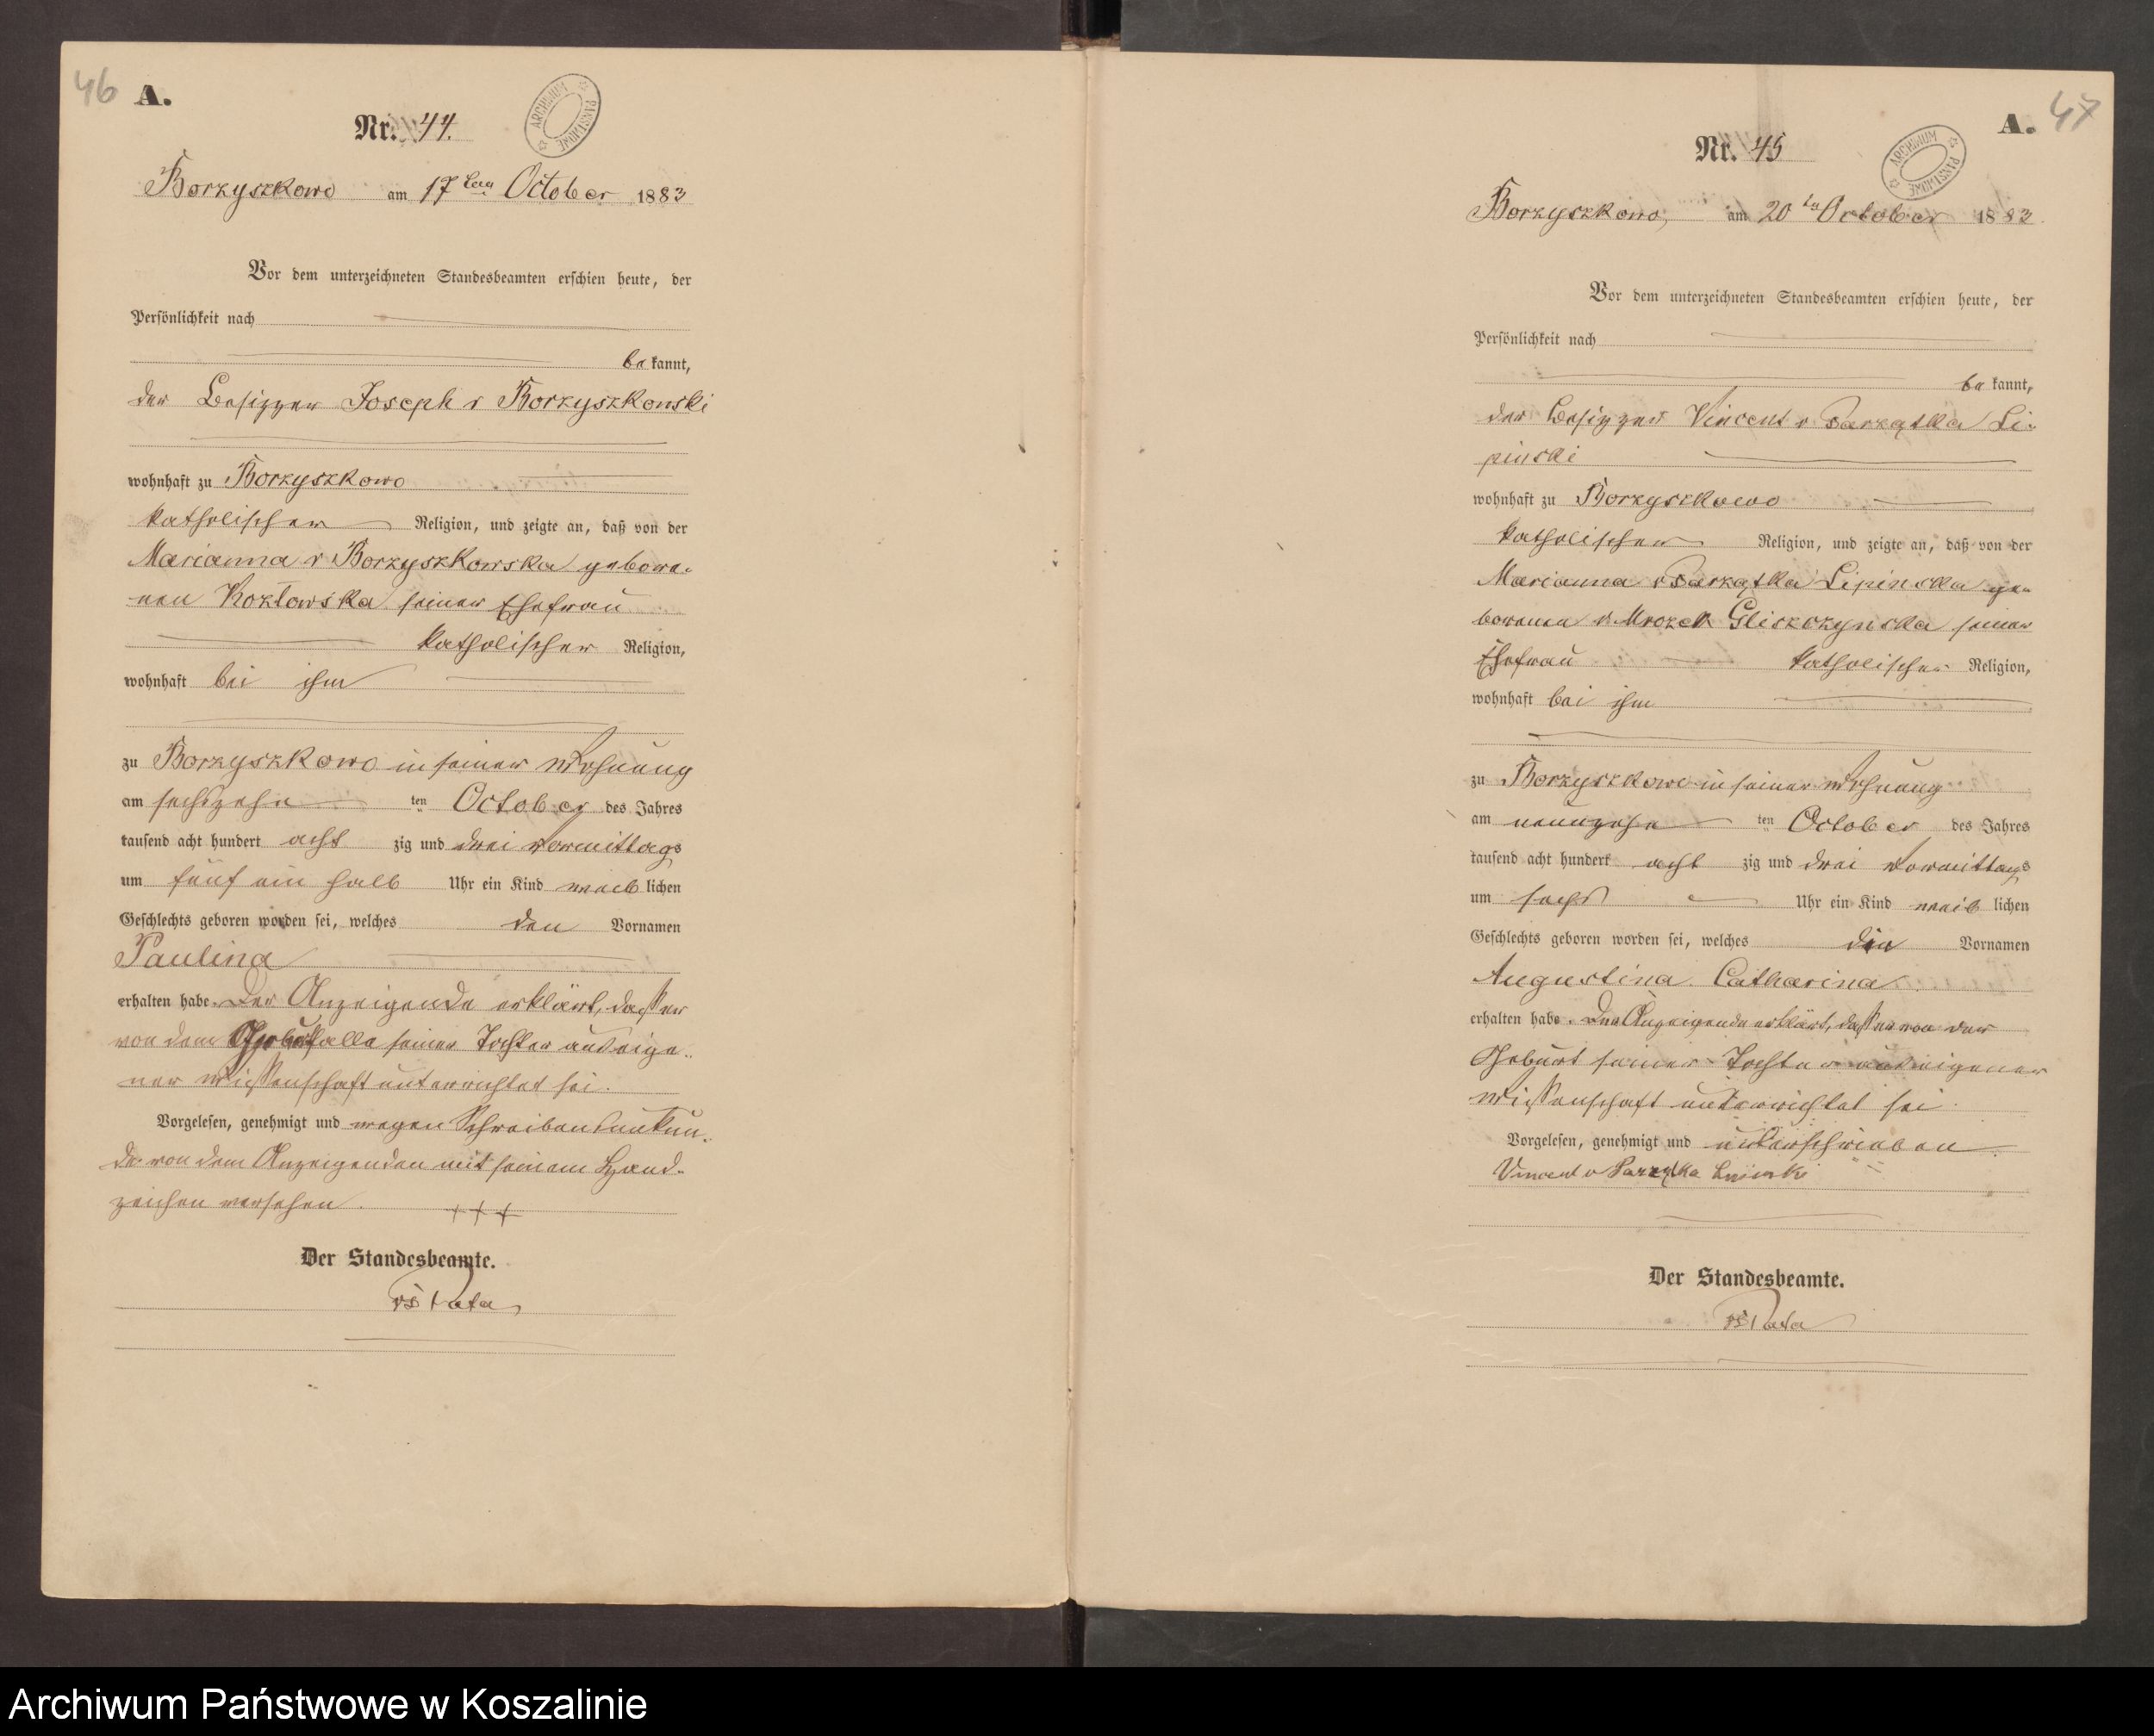 46
A.
ARCHIWUM PAŃSTWOWE
Nr. 44.
Borzyszkowo am 17ten October 1883
Vor dem unterzeichneten Standesbeamten erschien heute, der
Persönlichkeit nach
be kannt,
der Besitzer Joseph v Borzyszkowski
wohnhaft zu Borzyszkowo
katholischer Religion, und zeigte an, daß von der
Marianna v Borzyszkowska gebore-
nen Kozłowska seiner Ehefrau
katholischer Religion,
wohnhaft bei ihm
zu Borzyszkowo in seiner Wohnung
am sechszehn ten October des Jahres
tausend acht hundert acht zig und drei Vormittags
um fünf ein halb Uhr ein Kind weib lichen
Geschlechts geboren worden sei, welches den Vornamen
Paulina
erhalten habe. Der Anzeigende erklärt, daß er
von dem Geburtsfalle seiner Tochter aus eige-
ner Wissenschaft unterrichtet sei.
Vorgelesen, genehmigt und wegen Schreibensunkun-
de von dem Anzeigenden mit seinem Hand-
zeichen versehen. +++
Der Standesbeamte.
47
A.
ARCHIWUM PAŃSTWOWE
Nr. 45
Borzyszkowo, am 20ten October 1883
Vor dem unterzeichneten Standesbeamten erschien heute, der
Persönlichkeit nach
be kannt,
der Besitzer Vincent v Parzątka Li-
pinski
wohnhaft zu Borzyszkowo
katholischer Religion, und zeigte an, daß von der
Marianna v Parzątka Lipinska ge-
borenen v Mrozek Gliszczynska seiner
Ehefrau katholischer Religion,
wohnhaft bei ihm
zu Borzyszkowo in seiner Wohnung
am neunzehn ten October des Jahres
tausend acht hundert acht zig und drei Vormittags
um sechs Uhr ein Kind weib lichen
Geschlechts geboren worden sei, welches die Vornamen
Augustina Catharina
erhalten habe. Der Anzeigende erklärt, daß er von der
Geburt seiner Tochter aus eigener
Wissenschaft unterrichtet sei.
Vorgelesen, genehmigt und unterschrieben
Vincent v Parzątka Lipinski
Der Standesbeamte.
Archiwum Państwowe w Koszalinie